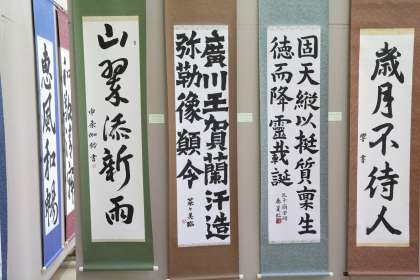 歳月不待人
固天縱以挺質稟生
徳而降靈載誕
廣川王賀蘭汗造
弥勒像願今
山翠添新雨
惠風和暢